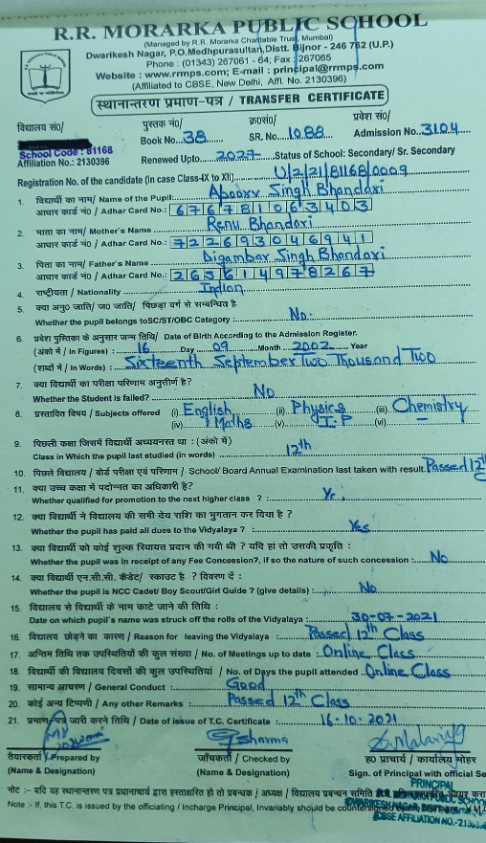 R.R. MORARKA PUBLIC SCHOOL
(Managed by R.R. Morarka Charitable Trust, Mumbai)
Dwarikesh Nagar, P.O.Medhpurasultan, Distt. Bijnor - 246 762 (U.P.)
Phone : (01343) 267061 - 64; Fax : 267065
Website : www.rrmps.com; E-mail : principal@rrmps.com
(Affiliated to CBSE, New Delhi, Affl. No. 2130396)
स्थानान्तरण प्रमाण-पत्र / TRANSFER CERTIFICATE
विद्यालय सं०/ पुस्तक नं०/ क्र०सं०/ प्रवेश सं०/
School Code : 81168 Book No. 38 SR. No. 1088 Admission No. 3104
Affiliation No.: 2130396 Renewed Upto. 2027 Status of School: Secondary/ Sr. Secondary
Registration No. of the candidate (In case Class-IX to XII) U/2/21/81168/0009
1. विद्यार्थी का नाम/ Name of the Pupil: Apoorv Singh Bhandari
आधार कार्ड नं० / Adhar Card No.: 676781063403
2. माता का नाम/ Mother's Name Renu Bhandari
आधार कार्ड नं० / Adhar Card No.: 722693046941
3. पिता का नाम/ Father's Name Digambar Singh Bhandari
आधार कार्ड नं० / Adhar Card No.: 265614978267
4. राष्ट्रीयता / Nationality Indian
5. क्या अनु० जाति/ ज० जाति/ पिछड़ा वर्ग से सम्बन्धित है
Whether the pupil belongs to SC/ST/OBC Category : No.
6. प्रवेश पुस्तिका के अनुसार जन्म तिथि/ Date of Birth According to the Admission Register.
(अंको में / In Figures) : 16 Day 09 Month 2002 Year
(शब्दों में / In Words) : Sixteenth September Two Thousand Two
7. क्या विद्यार्थी का परीक्षा परिणाम अनुत्तीर्ण है?
Whether the Student is failed? No
8. प्रस्तावित विषय / Subjects offered (i) English (ii) Physics (iii) Chemistry
(iv) Maths (v) I.P (vi)
9. पिछली कक्षा जिसमें विद्यार्थी अध्ययनरत था : (अंको में)
Class in Which the pupil last studied (in words) 12th
10. पिछले विद्यालय / बोर्ड परीक्षा एवं परिणाम / School/ Board Annual Examination last taken with result. Passed 12th
11. क्या उच्च कक्षा में पदोन्नत का अधिकारी है?
Whether qualified for promotion to the next higher class ? :
12. क्या विद्यार्थी ने विद्यालय की सभी देय राशि का भुगतान कर दिया है ?
Whether the pupil has paid all dues to the Vidyalaya ? : Yes
13. क्या विद्यार्थी को कोई शुल्क रियायत प्रदान की गयी थी ? यदि हां तो उसकी प्रकृति :
Whether the pupil was in receipt of any Fee Concession?, if so the nature of such concession : No
14. क्या विद्यार्थी एन.सी.सी. कैडेट/ स्काउट है ? विवरण दें :
Whether the pupil is NCC Cadet/ Boy Scout/Girl Guide ? (give details) : No
15. विद्यालय से विद्यार्थी के नाम काटे जाने की तिथि :
Date on which pupil's name was struck off the rolls of the Vidyalaya : 30-07-2021
16. विद्यालय छोड़ने का कारण / Reason for leaving the Vidyalaya Passed 12th Class
17. अन्तिम तिथि तक उपस्थितियों की कुल संख्या / No. of Meetings up to date : Online Class
18. विद्यार्थी की विद्यालय दिवसों की कुल उपस्थितियां / No. of Days the pupil attended Online Class
19. सामान्य आचरण / General Conduct : Good
20. कोई अन्य टिप्पणी / Any other Remarks : Passed 12th Class
21. प्रमाण-पत्र जारी करने तिथि / Date of Issue of T.C. Certificate : 16-10-2021
तैयारकर्ता / Prepared by जाँचकर्ता / Checked by ह० प्राचार्य / कार्यालय मोहर
(Name & Designation) (Name & Designation) Sign. of Principal with official Se
PRINCIPAL
नोट :- यदि यह स्थानान्तरण पत्र प्रधानाचार्य द्वारा हस्ताक्षरित हो तो प्रबन्धक / अध्यक्ष / विद्यालय प्रबन्धन समिति
Note :- If, this T.C. is issued by the officiating / Incharge Principal, Invariably should be
CBSE AFFILIATION NO.-